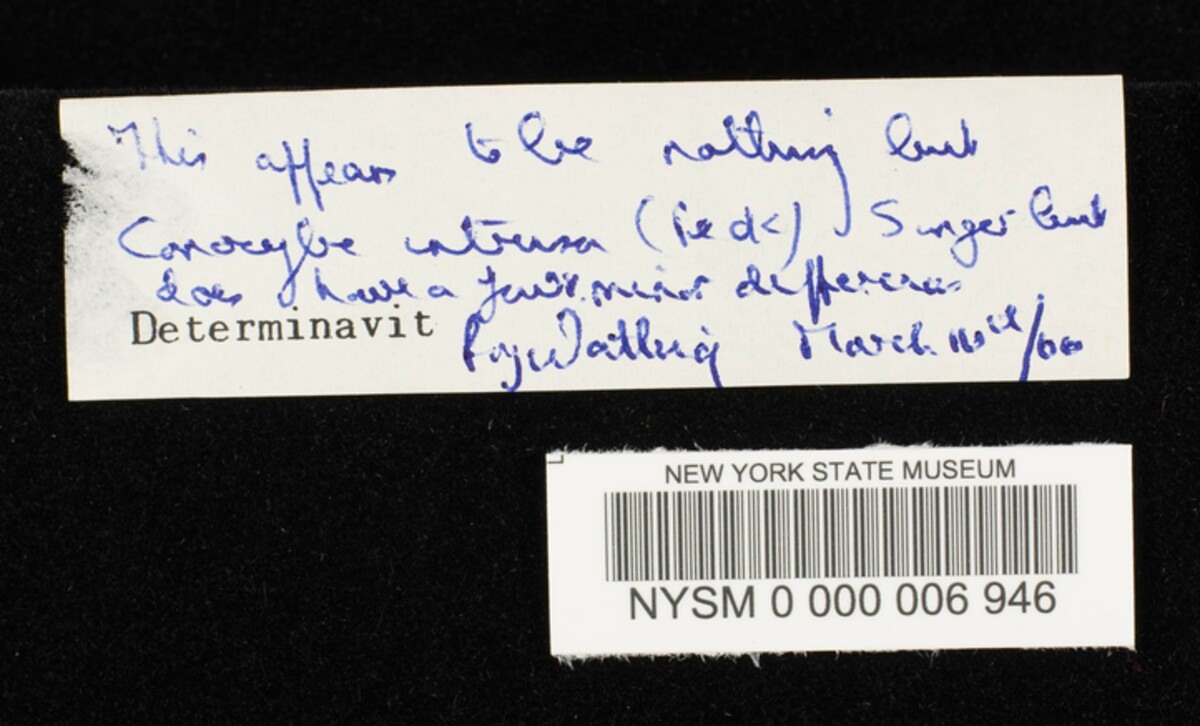 This appears to be nothing but
Conocybe intrusa (Peck) Singer but
does have a few minor differences
Determinavit Roy Watling March 10th/00
NEW YORK STATE MUSEUM
NYSM 0 000 006 946